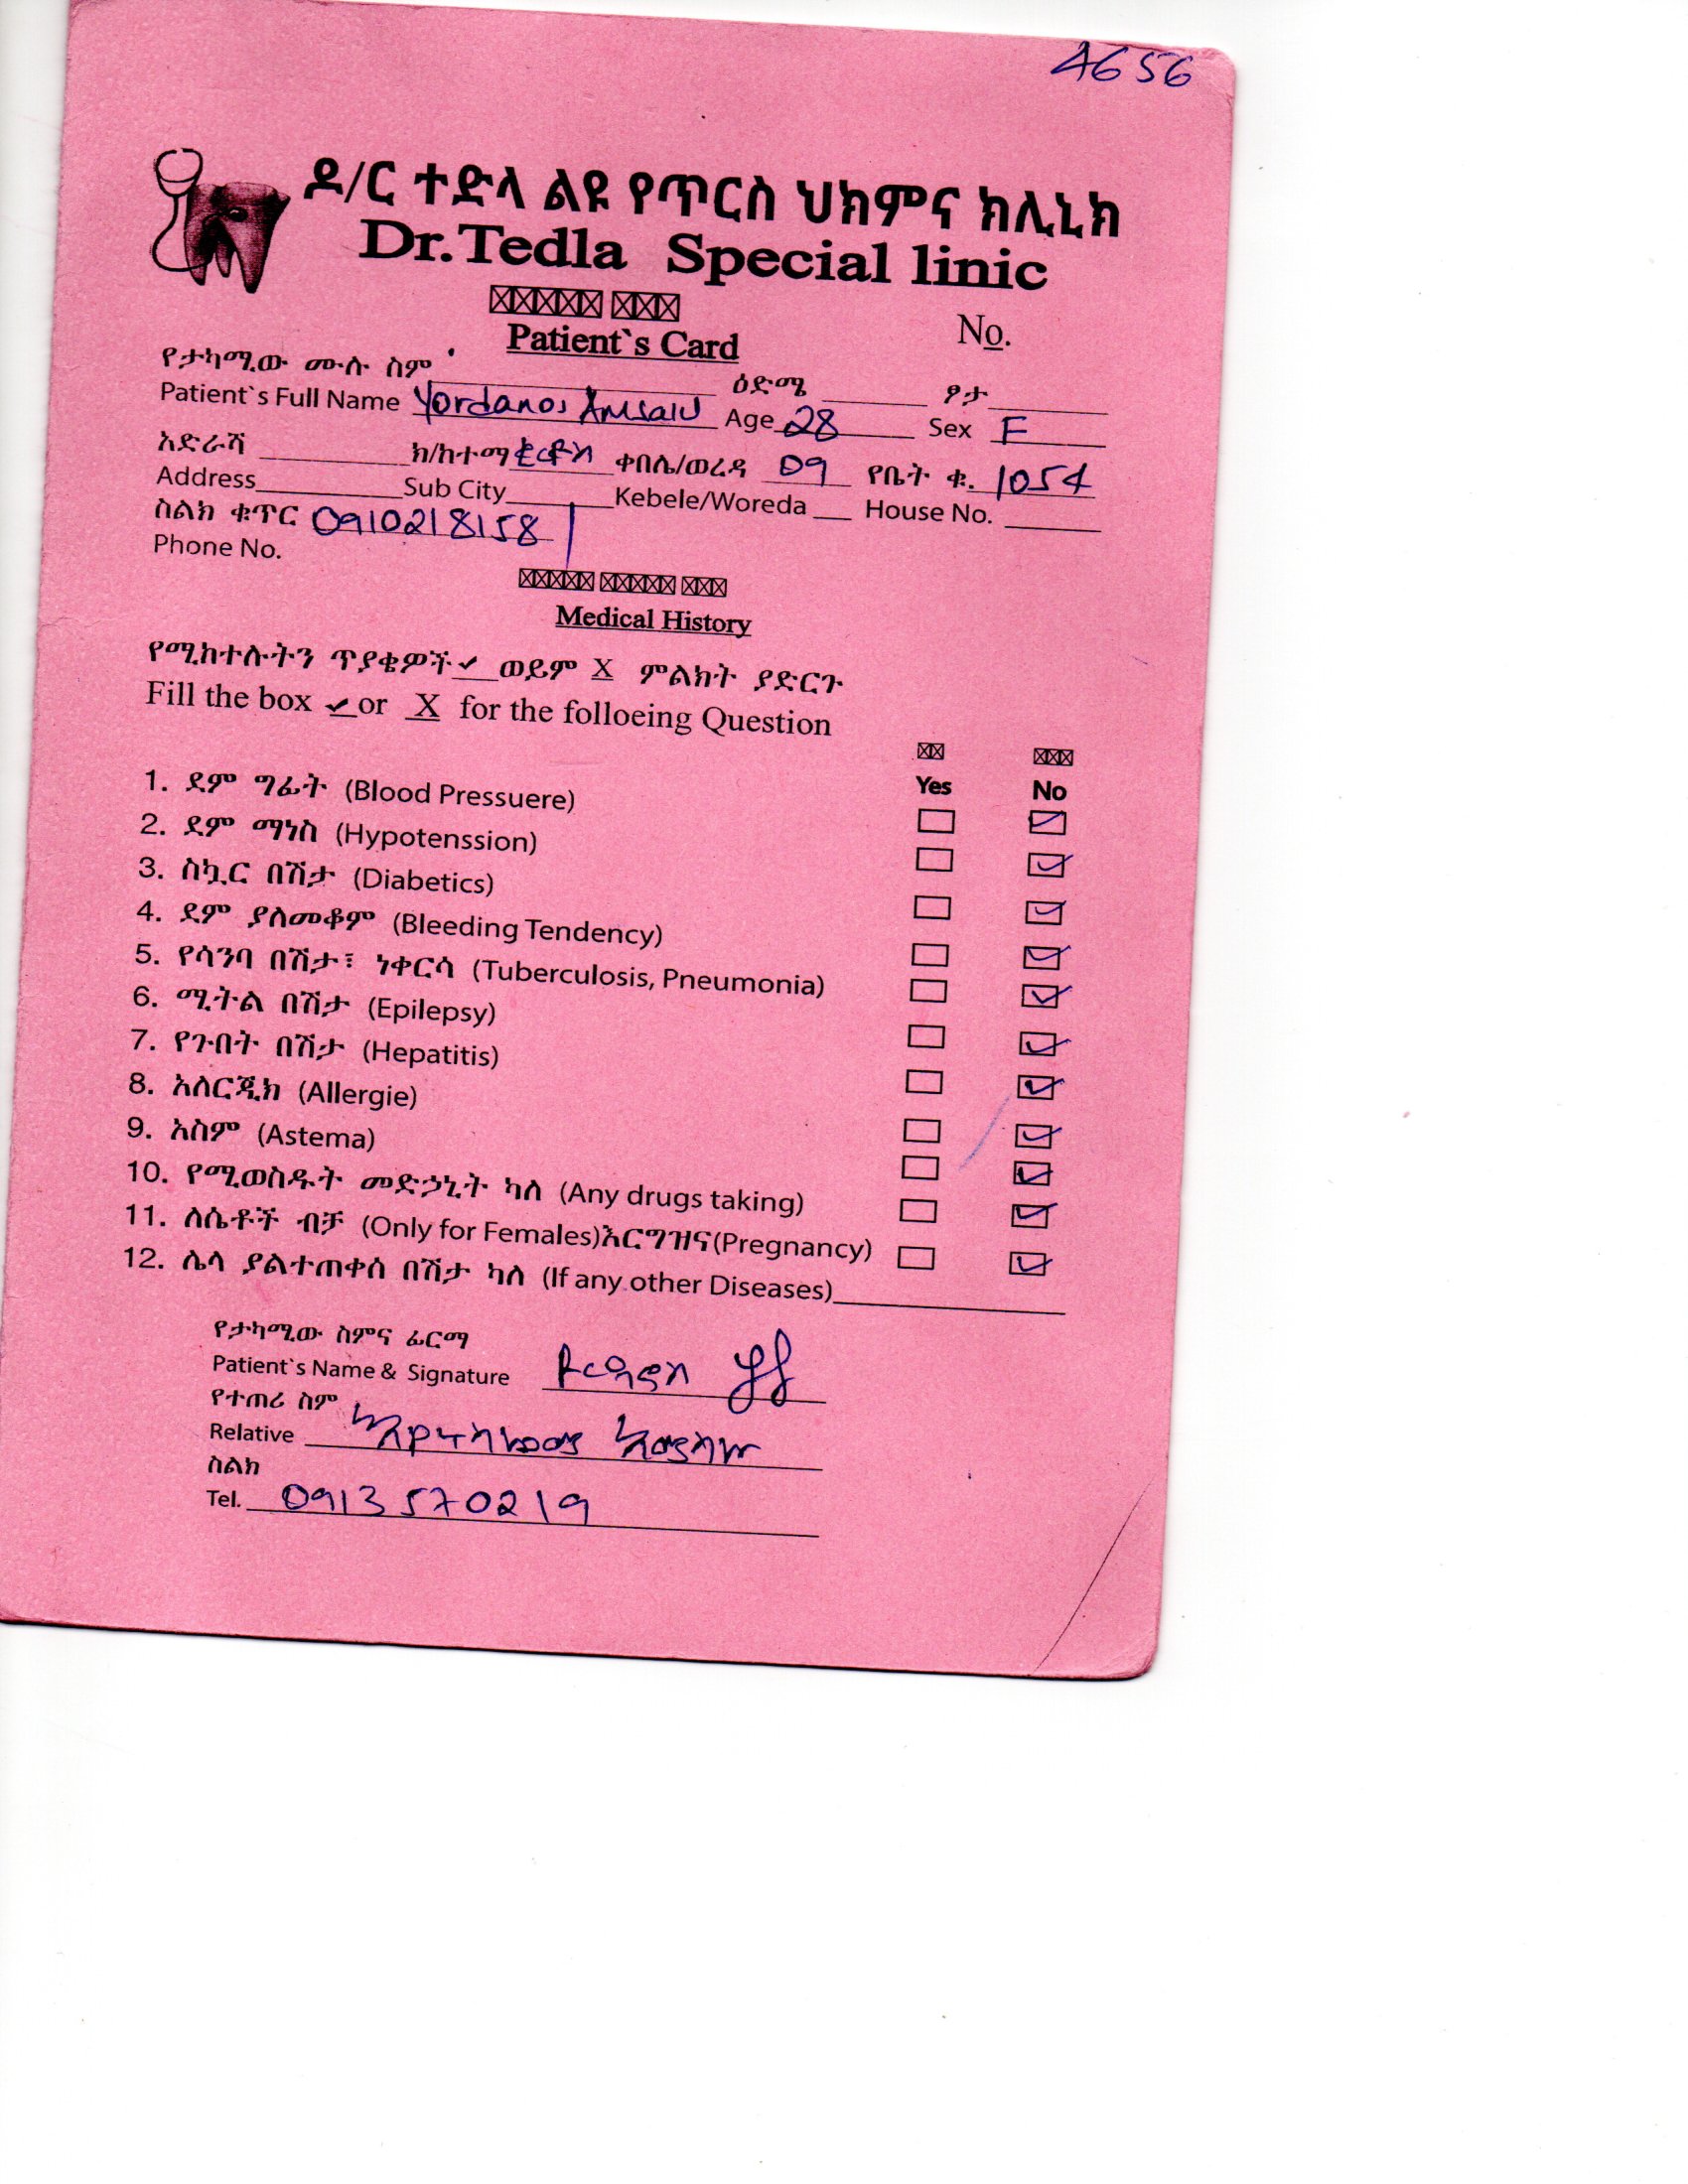 4656
ዶ/ር ተድላ ልዩ የጥርስ ህክምና ክሊኒክ
Dr.Tedla Special linic
Patient`s Card
No.
የታካሚው ሙሉ ስም ዕድሜ ፆታ
Patient`s Full Name Yordanos Amsalu Age 28 Sex F
አድራሻ ክ/ከተማ ቂርቆስ ቀበሌ/ወረዳ 09 የቤት ቁ. 1054
Address Sub City Kebele/Woreda House No.
ስልክ ቁጥር 0910218158
Phone No.
Medical History
የሚከተሉትን ጥያቄዎች ✓ ወይም X ምልክት ያድርጉ
Fill the box ✓ or X for the folloeing Question
Yes No
1. ደም ግፊት (Blood Pressuere)
2. ደም ማነስ (Hypotenssion)
3. ስኳር በሽታ (Diabetics)
4. ደም ያለመቆም (Bleeding Tendency)
5. የሳንባ በሽታ፣ ነቀርሳ (Tuberculosis, Pneumonia)
6. ሚትል በሽታ (Epilepsy)
7. የጉበት በሽታ (Hepatitis)
8. አለርጂክ (Allergie)
9. አስም (Astema)
10. የሚወስዱት መድኃኒት ካለ (Any drugs taking)
11. ለሴቶች ብቻ (Only for Females)እርግዝና(Pregnancy)
12. ሌላ ያልተጠቀሰ በሽታ ካለ (If any other Diseases)
የታካሚው ስምና ፊርማ
Patient`s Name & Signature ዮርዳኖስ
የተጠሪ ስም
Relative
ስልክ
Tel. 0913570219